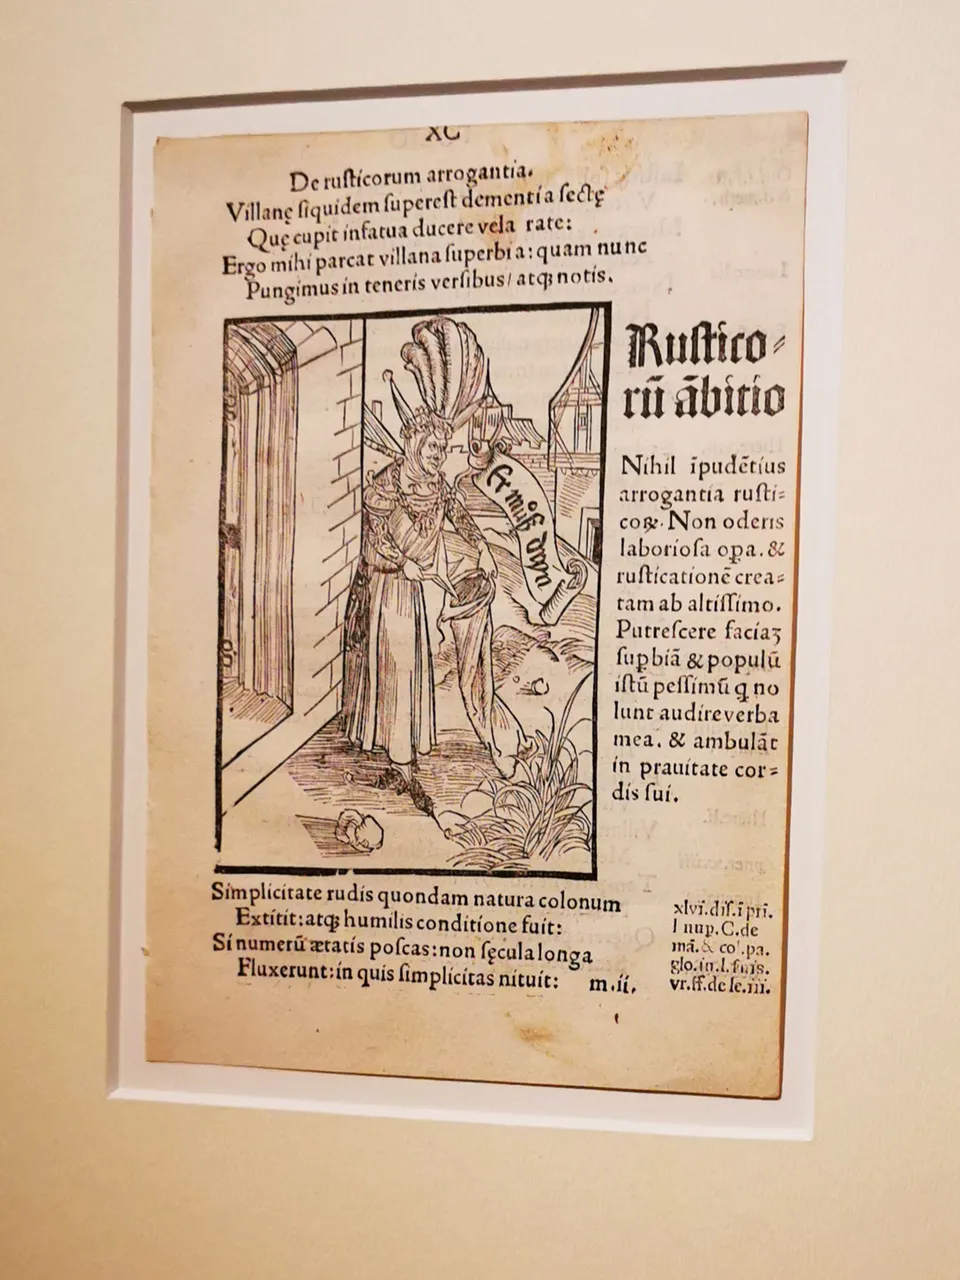 XC
De ruſticorum arrogantia.
Villanę ſiquidem ſupereſt dementia ſectę
Quę cupit infatua ducere vela rate:
Ergo mihi parcat villana ſuperbia: quam nunc
Pungimus in teneris verſibus/ atqꝫ notis.
Ruſtico⸗
rū ābitio
Er muſß dryn
Nihil īpudētius
arrogantia ruſti⸗
coꝝ. Non oderis
laborioſa oꝑa. &
ruſticationē crea⸗
tam ab altiſſimo.
Putreſcere faciaꝫ
ſuꝑbiā & populū
iſtū peſſimū q̣ no
lunt audire verba
mea. & ambulāt
in prauitate cor⸗
dis ſui.
Simplicitate rudis quondam natura colonum
Extitit: atqꝫ humilis conditione fuit:
Si numerū ætatis poſcas: non ſęcula longa
Fluxerunt: in quis ſimplicitas nituit:
m.ii.
xlvi.diſ.ī pri.
l nup.C.de
mā. & co'.pa.
glo.in.l.
vr.ff.de le.iii.